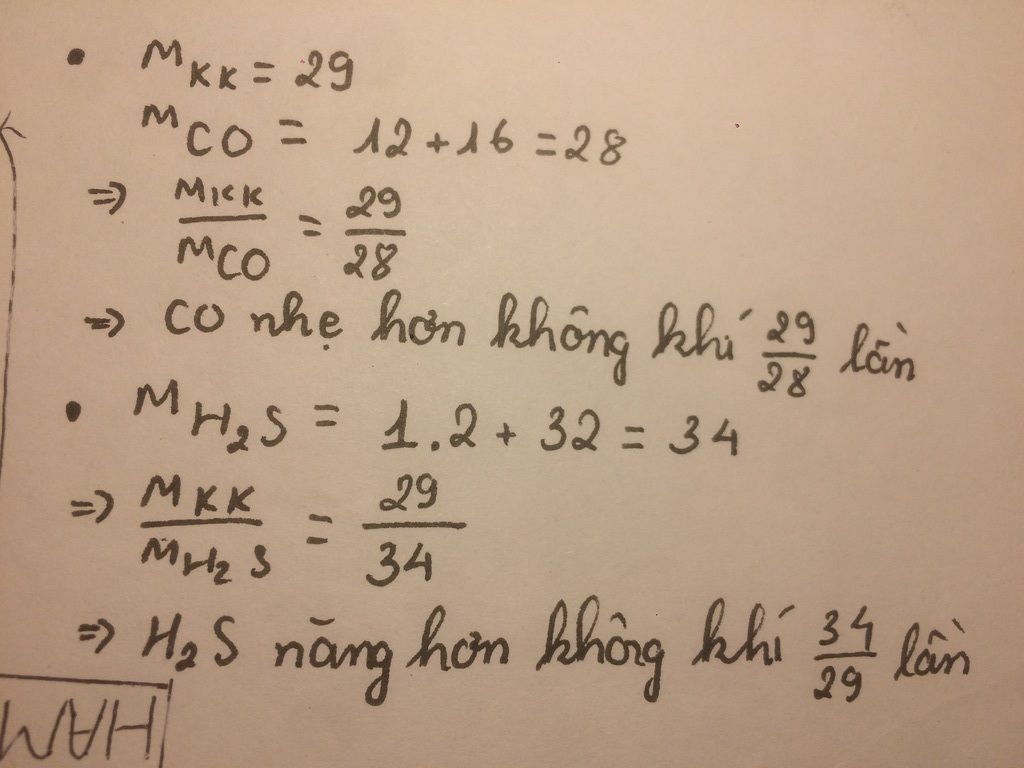 • M_KK = 29
M_CO = 12 + 16 = 28
=> M_KK / M_CO = 29/28
=> CO nhẹ hơn không khí 29/28 lần
• M_H₂S = 1.2 + 32 = 34
=> M_KK / M_H₂S = 29/34
=> H₂S nặng hơn không khí 34/29 lần
HAM